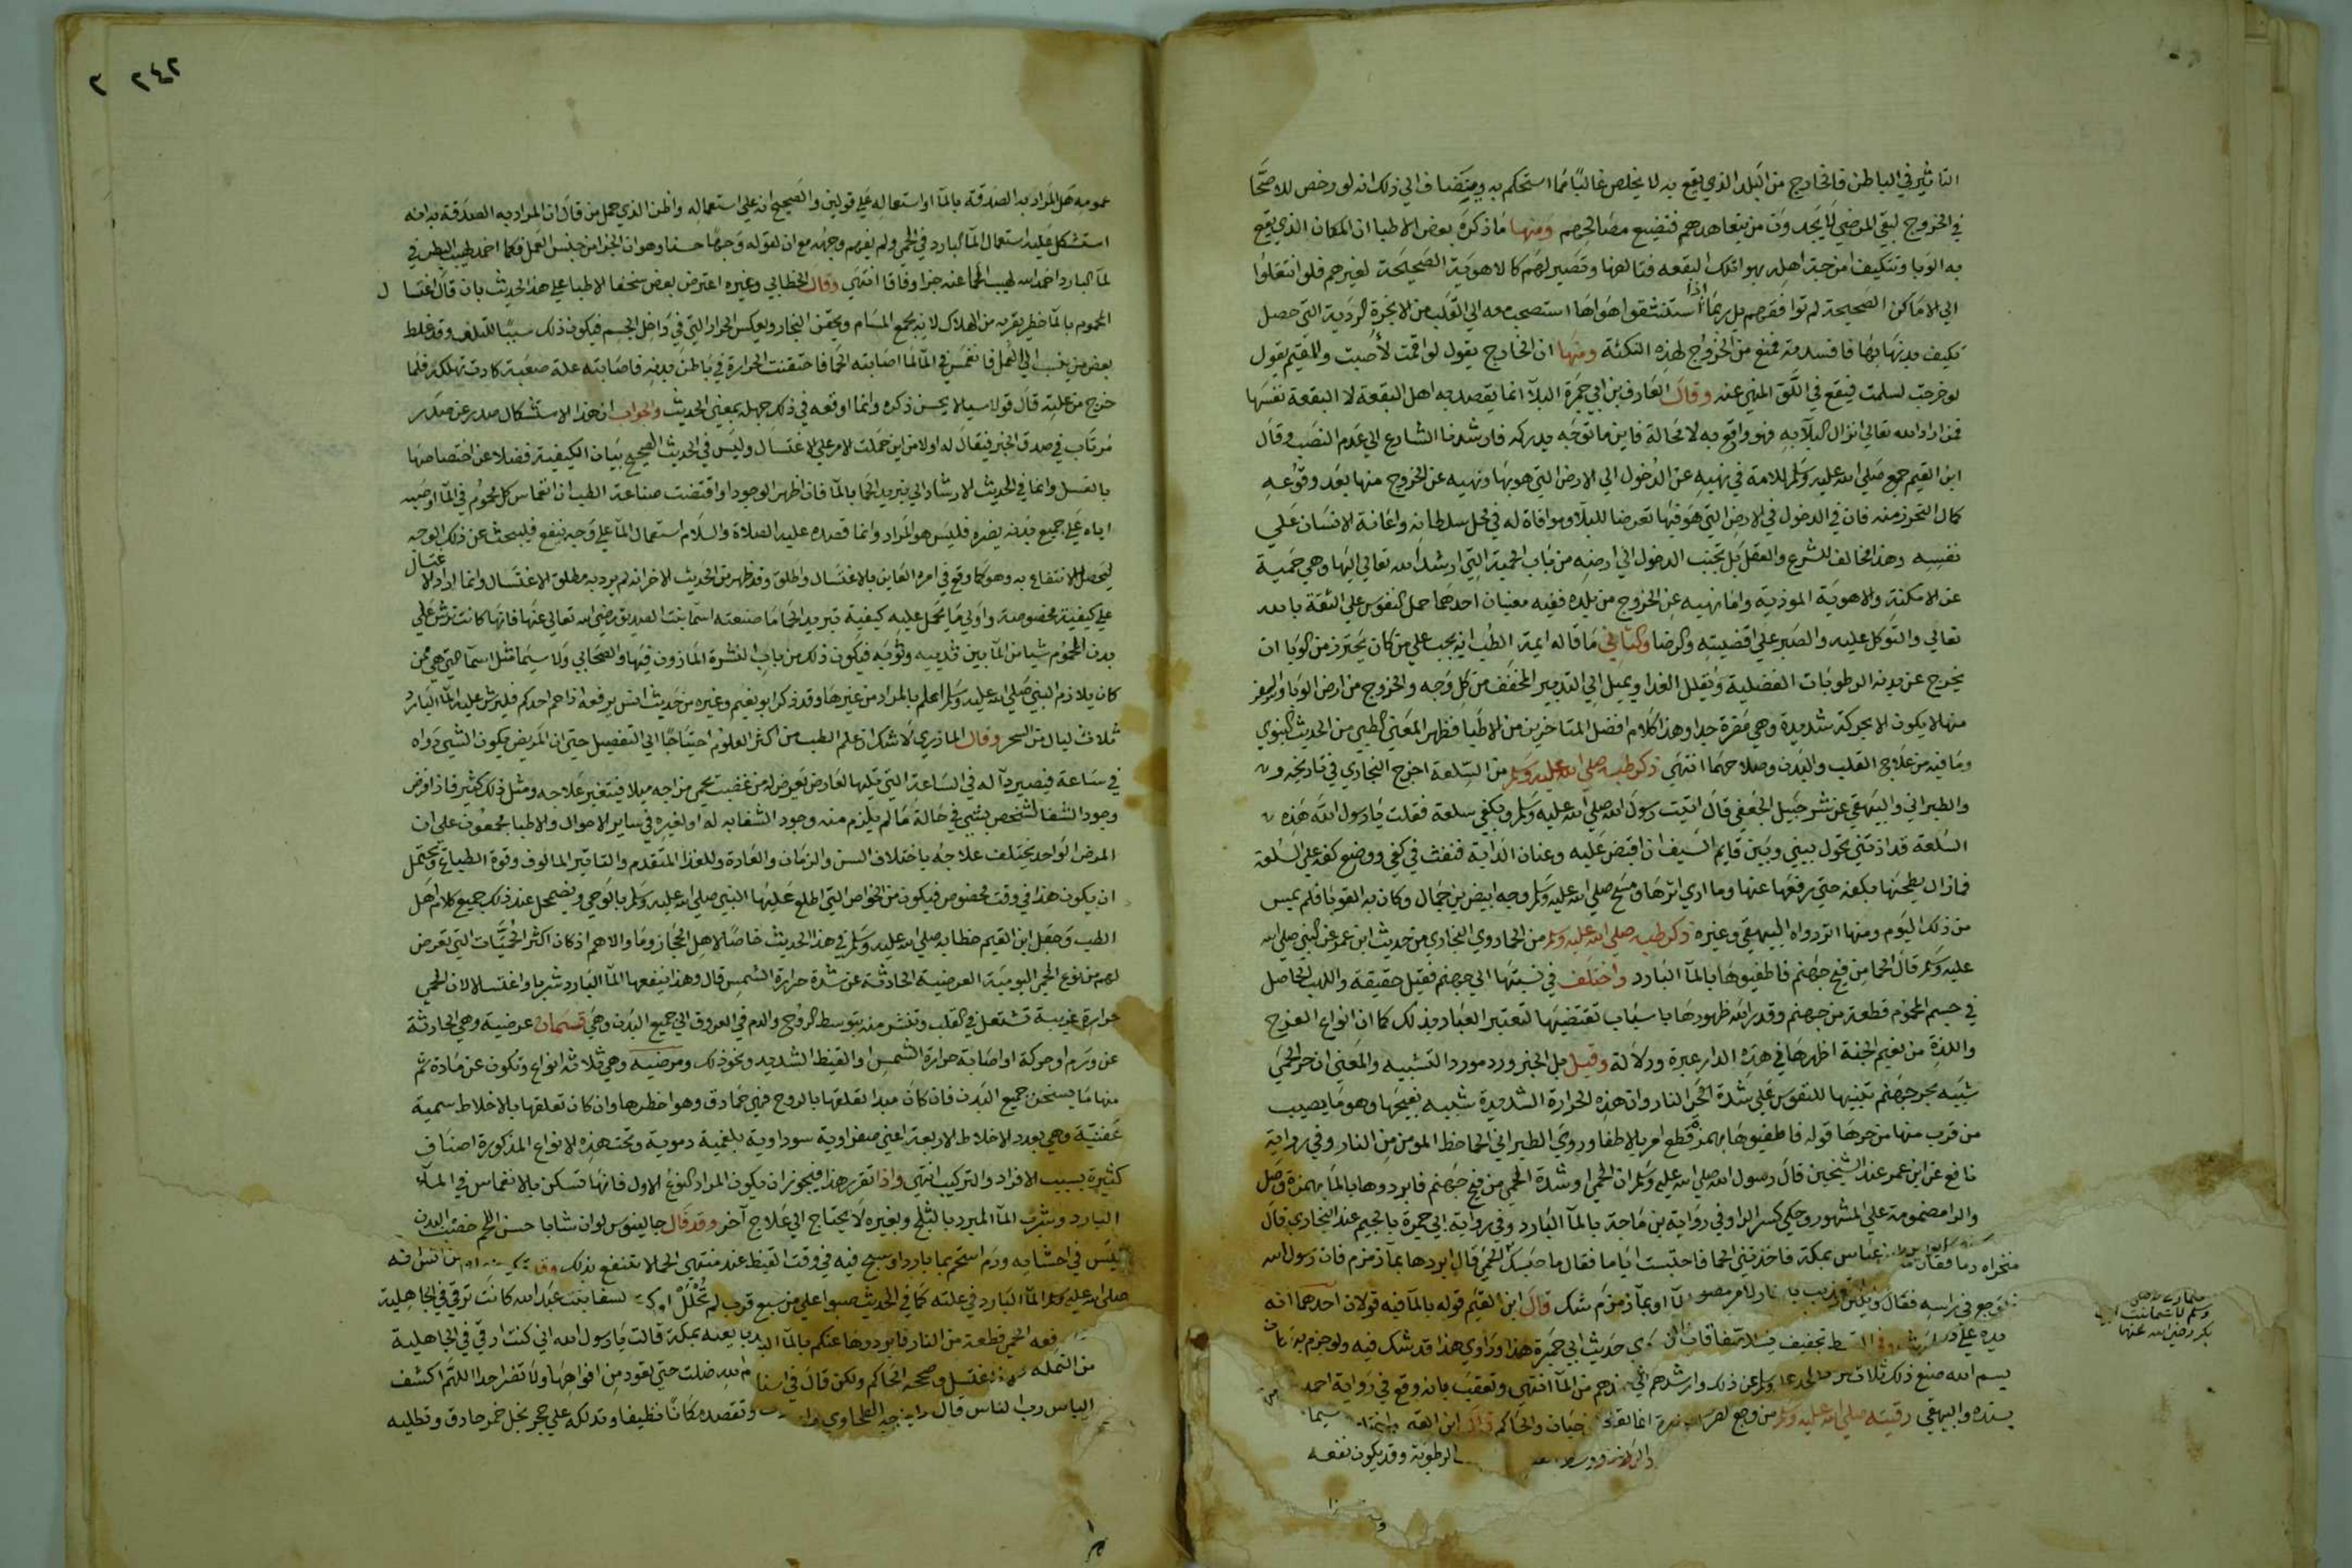 التاثير في الباطن فالخارج من البلد الذي يقع به لا يخلص غالبا مما استحكم به وينضاف الي ذلك انه لو رخص للاصحا
في الخروج لبقي المرضي لا يجدون من يتعاهدهم فتضيع مصالحهم ومنها ما ذكره بعض الاطبا ان المكان الذي يقع
به الوبا وتتكيف امزجة اهله بهوا تلك البقعه فتالفها وتصير لهم كالاهوية الصحيحة لغيرهم فلو انتقلوا
الي الاماكن الصحيحة لم توافقهم بل ربما اذا استنشقوا هواها استصحب معه الي القلب من الابخرة الردية التي حصل
تكيف بدنها بها فافسدته فمنع من الخروج لهذه النكتة ومنها ان الخارج يقول لو اقمت لأصبت والمقيم يقول
لو خرجت لسلمت فيقع في اللو المنهي عنه وقال العارف بن ابي جمرة البلآ انما يقصد به اهل البقعة لا البقعة نفسها
فمن اراد الله تعالي انزال البلآ به فهو واقع به لا محالة فاين ما توجه يدركه فارشدنا الشارع الي عدم النصب وقال
ابن القيم جمع صلي الله عليه وسلم للامة في نهيه عن الدخول الي الارض التي هو بها ونهيه عن الخروج منها بعد وقوعه
كمال التحرز منه فان في الدخول في الارض التي هو فيها تعرضا للبلآ وموافاة له في محل سلطانه واعانة الانسان علي
نفسه وهذا مخالف للشرع والعقل بل تجنب الدخول الي ارضه من باب الحمية التي ارشد الله تعالي اليها وهي حمية
عن الامكنة والاهوية الموذية واما نهيه عن الخروج من بلده ففيه معنيان احدهما حمل النفوس علي الثقة بالله
تعالي والتوكل عليه والصبر علي اقضيته والرضا والثاني ما قاله ايمة الطب انه يجب علي من كان يحترز من الوبا ان
يخرج عن بدنه الرطوبات الفضلية ويقلل الغدا ويميل الي التدبير المجفف من كل وجه والخروج من ارض الوبا والسفر
منها لا يكون الا بحركة شديدة وهي مضرة جدا وهذا كلام افضل المتاخرين من الاطبا فظهر المعني الطبي من الحديث النبوي
وما فيه من علاج القلب والبدن وصلاحهما انتهي ذكر طبه صلي الله عليه وسلم من السلعة اخرج البخاري في تاريخه و
والطبراني والبيهقي عن شرحبيل الجعفي قال اتيت رسول الله صلي الله عليه وسلم وبكفي سلعة فقلت يا رسول الله هذه
السلعة قد اذتني تحول بيني وبين قايم السيف ان اقبض عليه وعنان الدابة فنفث في كفي ووضع كفه علي السلعة
فما زال يطحنها بكفه حتي رفعها عنها وما اري اثرها ومسح صلي الله عليه وسلم وجه ابيض بن حمال وكان به القوبا فلم يمس
من ذلك اليوم ومنها اثر رواه البيهقي وغيره ذكر طبه صلي الله عليه وسلم من الحما روي البخاري من حديث ابن عمر عن النبي صلي الله
عليه وسلم قال الحما من فيح جهنم فاطفيوها بالمآ البارد واختلف في نسبتها الي جهنم فقيل حقيقة واللهب الحاصل
في جسم المحموم قطعة من جهنم وقدر الله ظهورها باسباب تقتضيها لتعتبر العباد بذلك كما ان انواع الفرح
واللذة من نعيم الجنة اظهرها في هذه الدار عبرة ودلالة وقيل بل الخبر ورد مورد التشبيه والمعني ان حر الحمي
شبيه بحر جهنم تنبيها للنفوس علي شدة حر النار وان هذه الحرارة الشديدة شبيه بفيحها وهو ما يصيب
من قرب منها من حرها قوله فاطفيوها بهمزه قطع امر بالاطفا وروي الطبراني الحما حظ المومن من النار وفي رواية
نافع عن ابن عمر عند الشيخين قال رسول الله صلي الله عليه وسلم ان الحمي او شدة الحمي من فيح جهنم فابردوها بالمآ بهمزة وصل
والرا مضمومة علي المشهور وحكي كسر الرا وفي رواية بن ماجة بالمآ البارد وفي رواية ابي جمرة بالجيم عند البخاري قال
عباس بمكة فاخذتني الحما فاحتبست اياما فقال ما حبسك الحمي قال ابردها بمآ زمزم فان رسول الله
او بمآ زمزم شك قال ابن القيم قوله بالمآ فيه قولان احدهما انه
حديث ابي جمرة هذا وراوي هذا قد شك فيه ولو جزم به
بسم الله صنع ذلك ثلاث عن ذلك وارشدهم من المآ انتهي وتعقب بانه وقع في رواية احمد
بسنده والبيهقي رقيته صلي الله عليه وسلم من وجع حبان والحاكم
الرطوبة وقد يكون نفعه
وسلم لاسما بنت ابي
بكر رضي الله عنها
٢٤٢ ٢
عمومه هل المراد به الصدقة بالمآ او استعماله علي قولين والصحيح انه علي استعماله واظن الذي حمل من قال ان المراد به الصدقة به انه
استشكل عليه استعمال المآ البارد في الحمي ولم يفهم وجهه مع ان لقوله وجها حسنا وهو ان الجزا من جنس العمل فكما اخمد لهيب العطش في
لمآ البارد اخمد الله لهيب الحما عنه جزا وفاقا انتهي وقال الخطابي وغيره اعترض بعض سخفا الاطبا علي هذا الحديث بان قال اغتسا ل
المحموم بالمآ خطر يقربه من الهلاك لانه يجمع المسام ويحقن البخار ويعكس الحرار التي في داخل الجسم فيكون ذلك سببا للتلف وقد غلط
بعض من ينسب الي العلم فانغمس في المآ لما اصابته الحما فاحتقنت الحرارة في باطن بدنه فاصابته علة صعبة كادت تهلكه فلما
خرج من علته قال قولا سيلا يحسن ذكره وانما اوقعه في ذلك جهله بمعني الحديث والجواب ان هذا الاستشكال صدر عن صدر
مرتاب في صدق الخبر فيقال له اولا من اين حملت الامر علي الاغتسال وليس في الحديث الصحيح بيان الكيفية فضلا عن اختصاصها
بالغسل وانما في الحديث الارشاد الي تبريد الحما بالمآ فان اظهر الوجود او اقتضت صناعة الطب ان انغماس كل محموم في المآ او صبه
اياه علي جميع بدنه يضره فليس هو المراد وانما قصده عليه الصلاة والسلام استعمال المآ علي وجه ينفع فليبحث عن ذلك الوجه
ليحصل الانتفاع به وهو كما وقع في امره العاين بالاغتسال واطلق وقد ظهر من الحديث الاخر انه لم يرد به مطلق الاغتسال وانما اراد الاغتسال
علي كيفية مخصوصة واولي ما يحمل عليه كيفية تبريد الحما ما صنعته اسما بنت الصديق رضي الله تعالي عنها فانها كانت ترش علي
بدن المحموم شيا من المآ بين ثدييه وثوبه فيكون ذلك من باب النشرة الماذون فيها والصحابي ولا سيما مثل اسما التي هي ممن
كان يلازم النبي صلي الله عليه وسلم اعلم بالمراد من غيرها وقد ذكر ابو نعيم وغيره من حديث انس يرفعه اذا حم احدكم فليرش عليه المآ البارد
ثلاث ليال من السحر وقال المازري لا شك ان علم الطب من اكثر العلوم احتياجا الي التفصيل حتي ان المريض يكون الشي دواه
في ساعة فيصير دآ له في الساعة التي تليها لعارض يعرض له من غضب يحمي مزاجه ميلا فيتغير علاجه ومثل ذلك كثير فاذا فرض
وجود الشفا لشخص بشي في حالة ما لم يلزم منه وجود الشفا به له او لغيره في ساير الاحوال والاطبا مجمعون علي ان
المرض الواحد يختلف علاجه باختلاف السن والزمان والعادة وللغذا المتقدم والتاثير المالوف وقوة الطباع ويحتمل
ان يكون هذا في وقت مخصوص فيكون من الخواص التي اطلع عليها النبي صلي الله عليه وسلم بالوحي ويضمحل عند ذلك جميع كلام اهل
الطب وجعل ابن القيم خطابه صلي الله عليه وسلم في هذا الحديث خاصا لاهل الحجاز وما والاهم اذ كان اكثر الحميات التي تعرض
لهم من نوع الحمي اليومية العرضية الحادثة عن شدة حرارة الشمس قال وهذا ينفعها المآ البارد شربا واغتسالا لان الحمي
حرارة غريبة تشتعل في القلب وتنتشر منه بتوسط الروح والدم في العروق الي جميع البدن وهي قسمان عرضية وهي الحادثة
عن ورم او حركة او اصابة حرارة الشمس او القيظ الشديد ونحو ذلك ومرضيه وهي ثلاثة انواع وتكون عن مادة ثم
منها ما يسخن جميع البدن فان كان مبدا تعلقها بالروح فهي حما دق وهو اخطرها وان كان تعلقها بالاخلاط سمية
عفنية وهي بعدد الاخلاط الاربعة اعني صفراوية سوداوية بلغمية دموية وتحت هذه الانواع المذكورة اصناف
كثيرة بسبب الافراد والتركيب انتهي واذا تقرر هذا فيجوز ان يكون المراد النوع الاول فانها تسكن بالانغماس في المآ
البارد وشرب المآ المبرد بالثلج وبغيره لا يحتاج الي علاج آخر وقد قال جالينوس لو ان شابا حسن اللحم خصب البدن
ليس في احشايه ورم استحم بما بارد او سبح فيه في وقت القيظ عند منتهي الحما لانتفع بذلك
صلي الله عليه وسلم المآ البارد في علته كما في الحديث صبوا علي من سبع قرب لم تحلل عبد الله كانت ترقي في الجاهلية
الحمي قطعة من النار فابردوها عنكم بالمآ البارد بايعنه بمكة قالت يا رسول الله اني كنت ارقي في الجاهلية
من النمله فاغتسل وصححه الحاكم ولكن قال في اسنا ضلت حتي تعود من افواهها ولا تضر احدا اللهم اكشف
الباس رب الناس قال الطحاوي وتقصده مكانا نظيفا وتدلكه علي حجر بخل خمر حاذق وتطليه